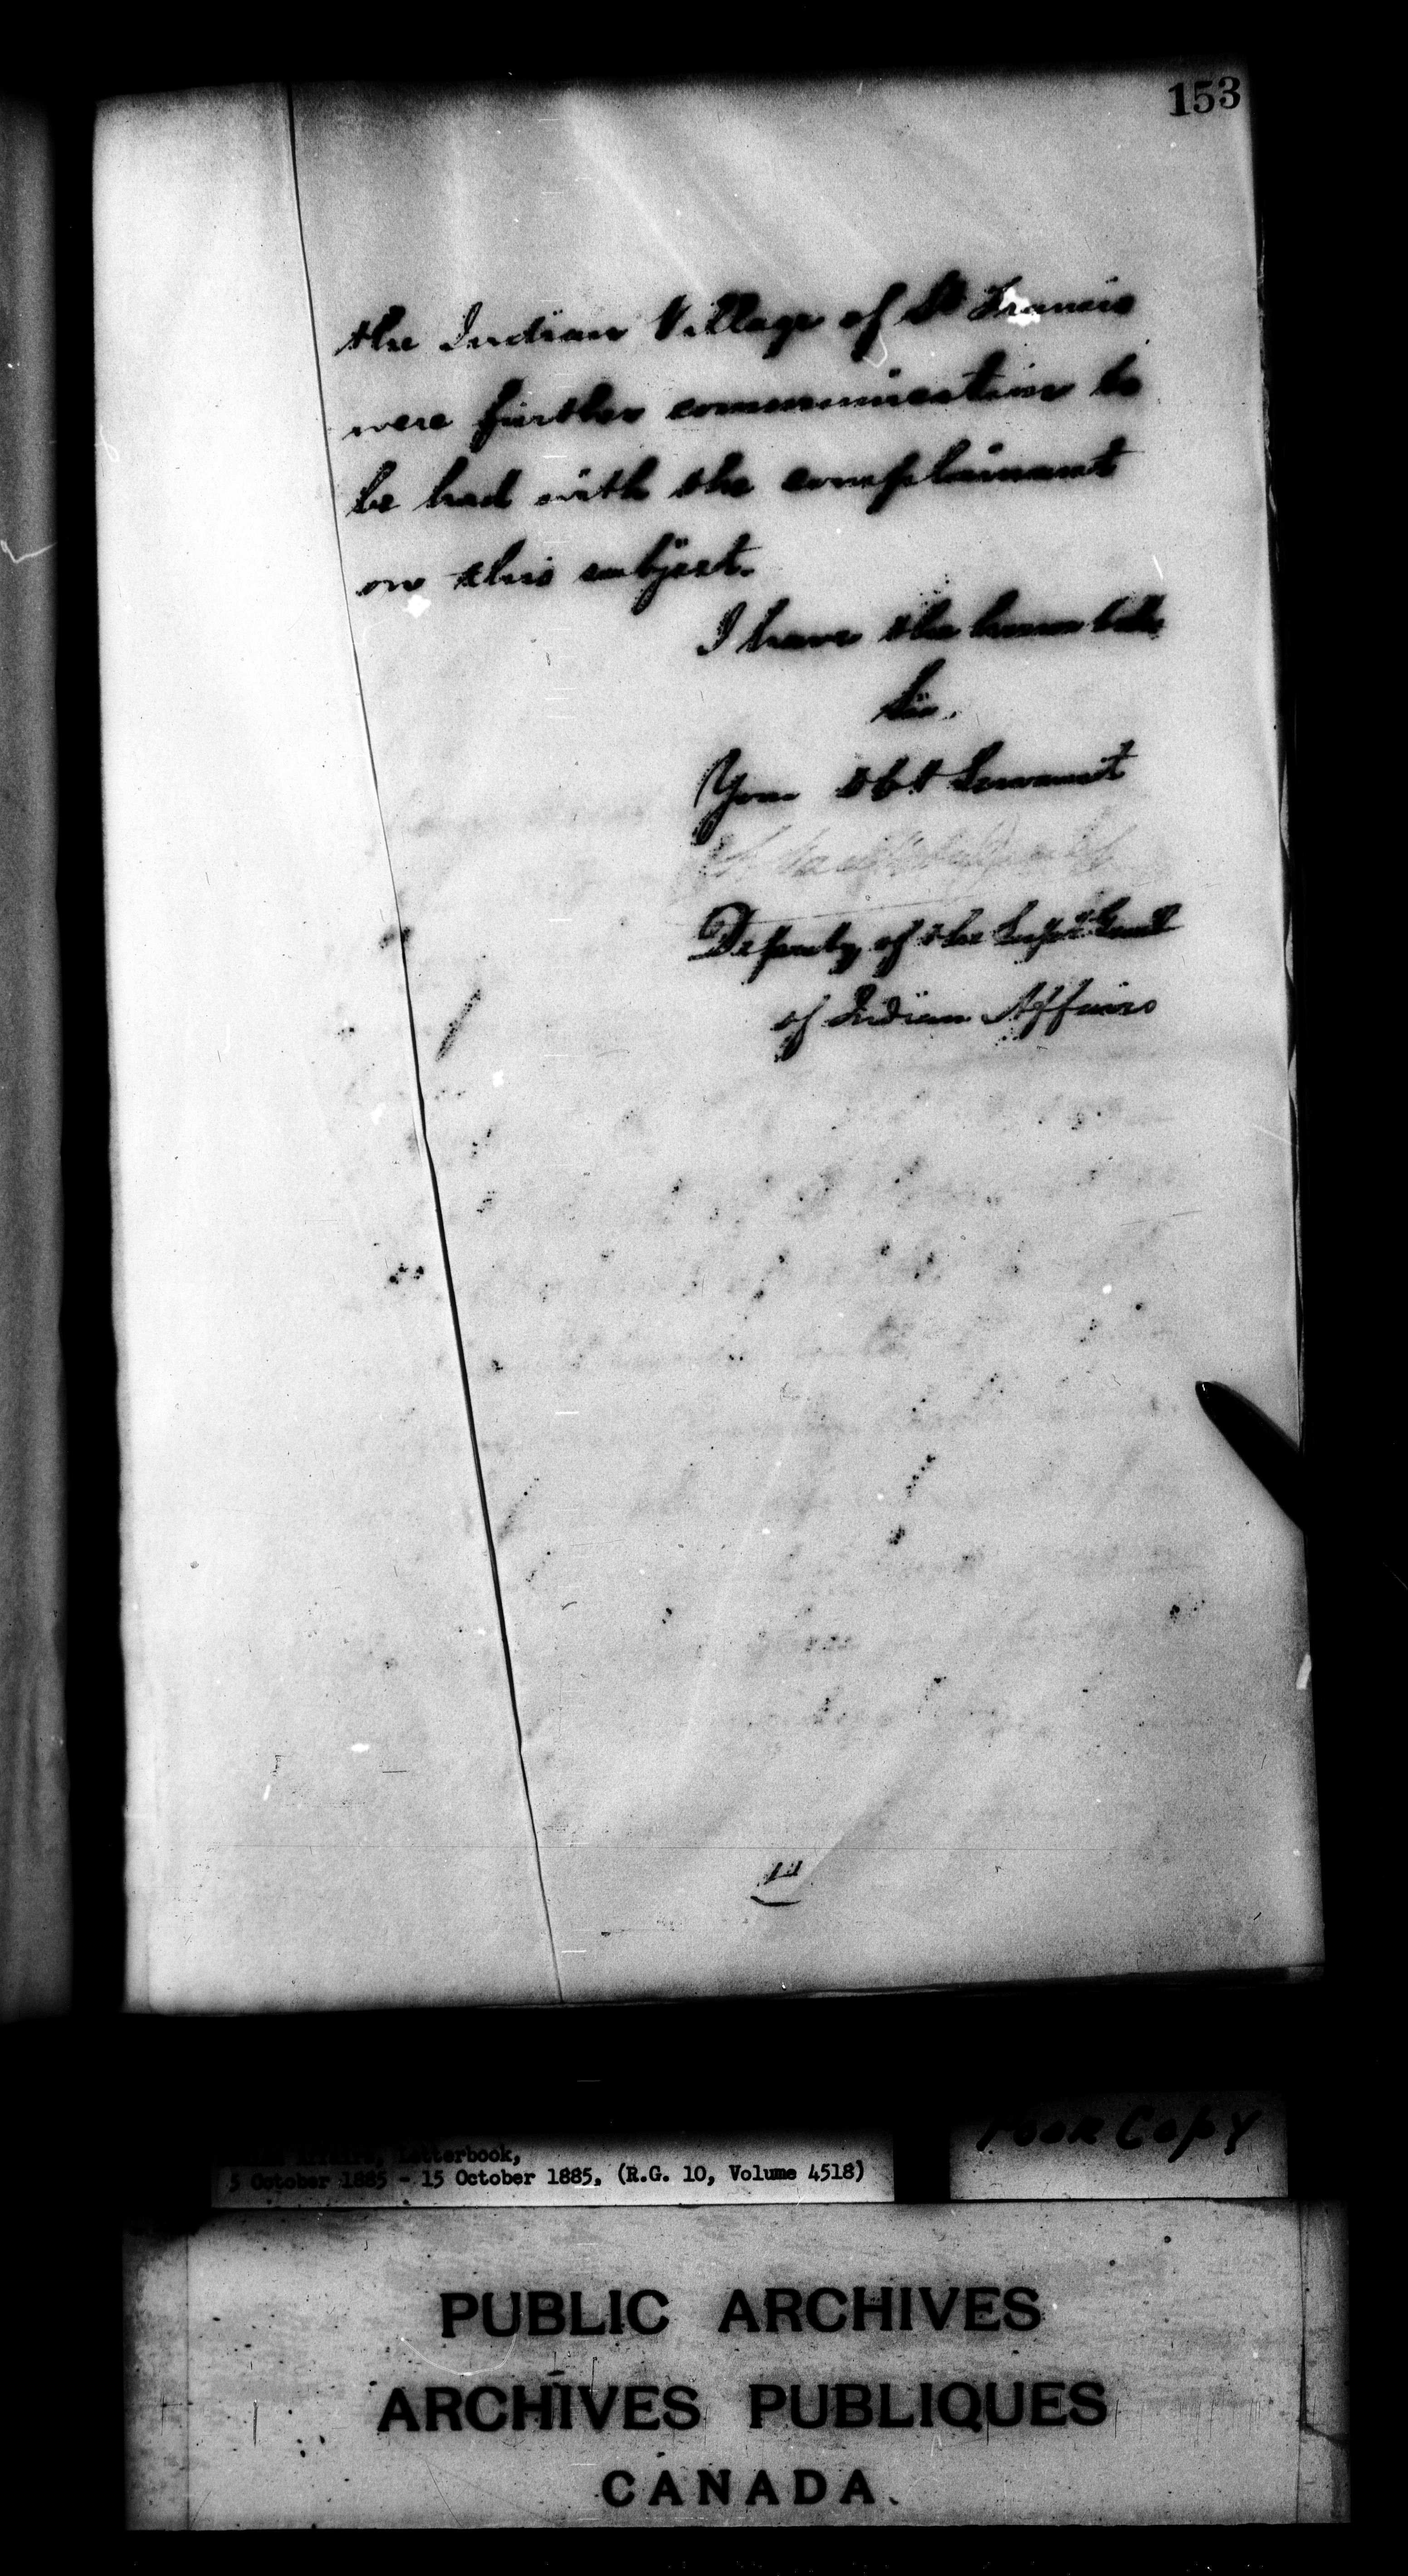 153
the Indian Village of St Francis
were further communication to
be had with the complainant
on this subject.
I have the honor to be
Sir,
Your obt Servant
Deputy of the Supt Genl
of Indian Affairs
Poor Copy
Affairs, Letterbook,
5 October 1885 - 15 October 1885, (R.G. 10, Volume 4518)
PUBLIC ARCHIVES
ARCHIVES PUBLIQUES
CANADA